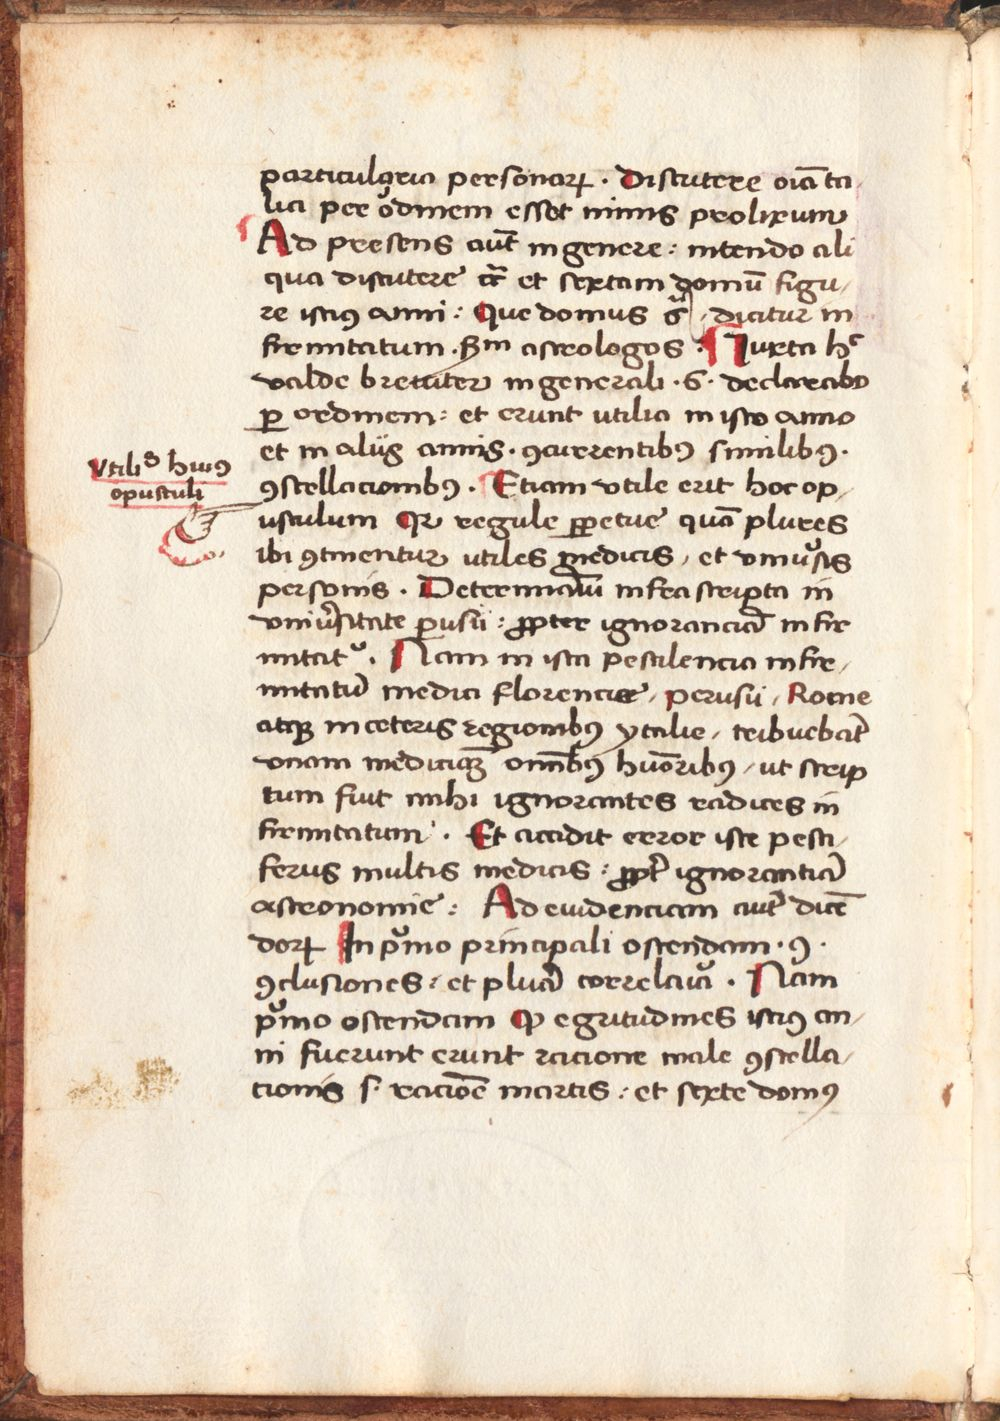 particularia personarꝝ. Discutere oīa ta
lia per ordinem esset nimis prolixum
Ad presens aut̄ in genere: intendo ali
qua discutere et sextam domū figu,
re istius anni: Que domus dicitur in
firmitatum. astrologos. Iuxta
valde breuiter in generali .6. declarabo
ꝑ ordinem: et erunt utilia in isto anno
et in aliis annis. ꝯcurrentibꝰ similibꝰ.
Vtilis huiꝰ
opusculi
ꝯstellacionibꝰ. Etiam vtile erit hoc op,
usculum regule ꝑpetue quā plures
ibi ꝯtinentur utiles medicis, et vniūsis
personis. infra scripta in
vniūsitate ꝑusii: ꝓpter ignoranciā infir
mitatū. Nam in ista pestilencia infir,
mitatū medici florencie, perusii, Rome
atqꝫ in ceteris regionibꝰ ytalie, tribuebāt
vnam medicinā omībꝰ huōribꝰ, ut scrip
tum fuit mihi ignorantes radices in
firmitatum. Et accidit error iste pesti,
ferus multis medicis: ꝓpt̄ ignorantiā
astronomie: Ad euidenciam aut̄ dicē
dorꝝ In pͥmo principali ostendam .9.
ꝯclusiones: et pluā correlaria. Nam
pͥmo ostendam ꝙ egritudines istiꝰ an,
ni fuerunt erunt racione male ꝯstella,
cionis s. raciōe martis: et sexte domꝰ